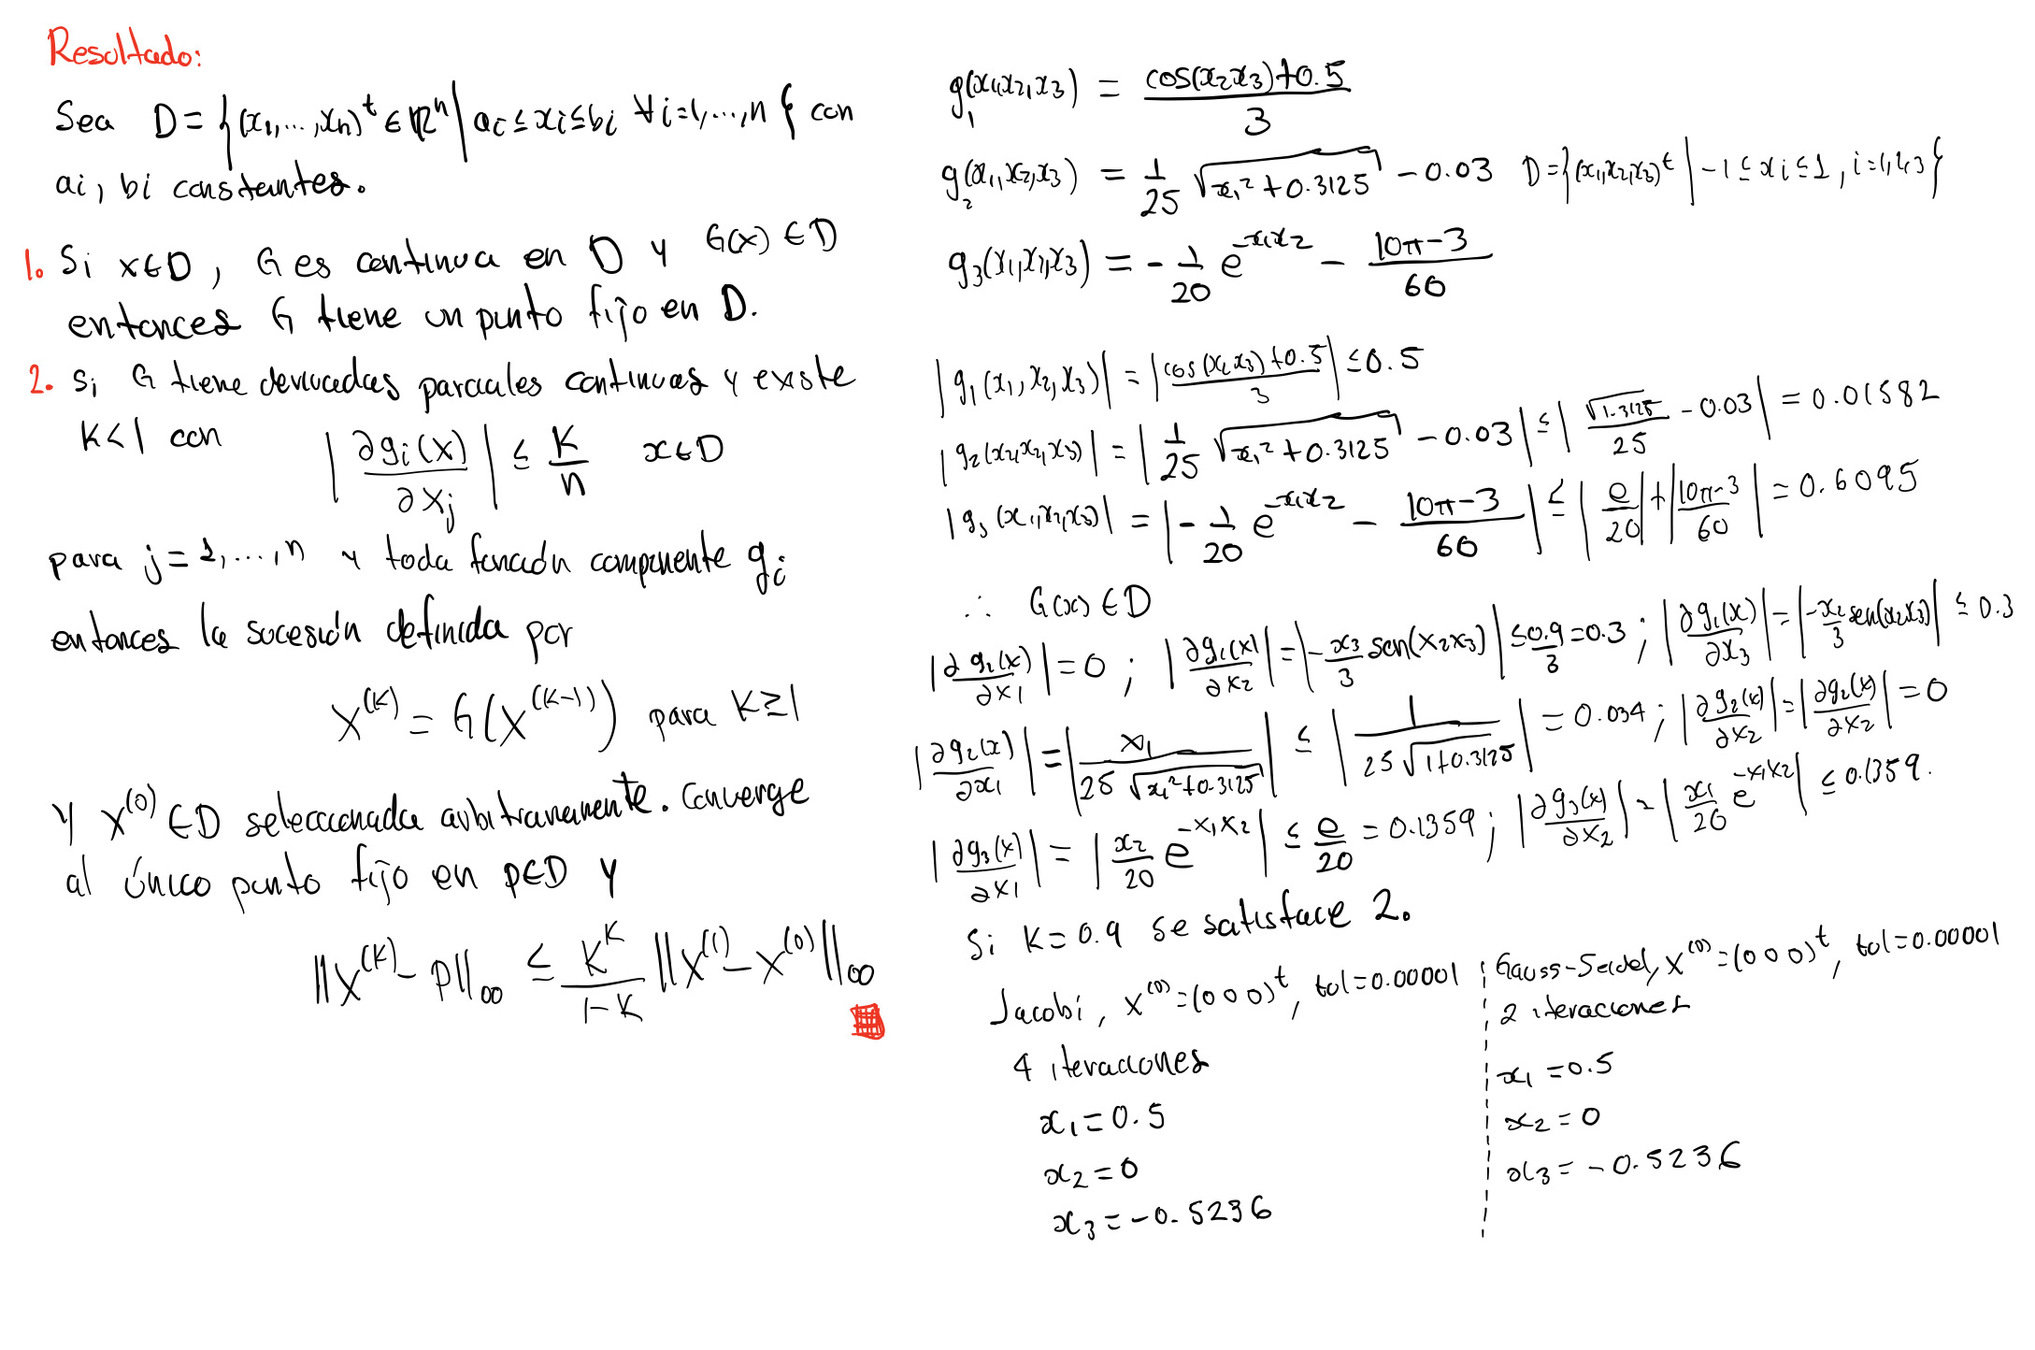 Resultado:
Sea D = {(x₁,...,xₙ)ᵗ ∈ ℝⁿ | ai ≤ xi ≤ bi ∀ i=1,...,n} con
ai, bi constantes.
1. Si x∈D, G es continua en D y G(x) ∈ D
entonces G tiene un punto fijo en D.
2. Si G tiene derivadas parciales continuas y existe
K<1 con |∂gi(x)/∂xj| ≤ K/n x∈D
para j=1,...,n y toda función componente gi
entonces la sucesión definida por
x^(K) = G(x^(K-1)) para K≥1
y x^(0) ∈ D seleccionada arbitrariamente. Converge
al único punto fijo en p∈D y
||x^(K) - p||∞ ≤ K^K/(1-K) ||x^(1) - x^(0)||∞
g₁(x₁,x₂,x₃) = (cos(x₂x₃)+0.5)/3
g₂(x₁,x₂,x₃) = 1/25 √(x₁²+0.3125) - 0.03 D={(x₁,x₂,x₃)ᵗ | -1≤xi≤1, i=1,2,3}
g₃(x₁,x₂,x₃) = -1/20 e^(-x₁x₂) - (10π-3)/60
|g₁(x₁,x₂,x₃)| = |(cos(x₂x₃)+0.5)/3| ≤ 0.5
|g₂(x₁,x₂,x₃)| = |1/25 √(x₁²+0.3125) - 0.03| ≤ |√1.3125/25 - 0.03| = 0.01582
|g₃(x₁,x₂,x₃)| = |-1/20 e^(-x₁x₂) - (10π-3)/60| ≤ |e/20| + |(10π-3)/60| = 0.6095
∴ G(x) ∈ D
|∂g₁(x)/∂x₁| = 0 ; |∂g₁(x)/∂x₂| = |-x₃/3 sen(x₂x₃)| ≤ 0.9/3 = 0.3 ; |∂g₁(x)/∂x₃| = |-x₂/3 sen(x₂x₃)| ≤ 0.3
|∂g₂(x)/∂x₁| = |x₁/(25√(x₁²+0.3125))| ≤ |1/(25√(1+0.3125))| = 0.034 ; |∂g₂(x)/∂x₂| = |∂g₂(x)/∂x₂| = 0
|∂g₃(x)/∂x₁| = |x₂/20 e^(-x₁x₂)| ≤ e/20 = 0.1359 ; |∂g₃(x)/∂x₂| = |x₁/20 e^(-x₁x₂)| ≤ 0.1359.
Si K=0.9 se satisface 2.
Jacobi, x^(0)=(0 0 0)ᵗ, tol=0.00001
4 iteraciones
x₁=0.5
x₂=0
x₃=-0.5236
Gauss-Seidel, x^(0)=(0 0 0)ᵗ, tol=0.00001
2 iteraciones
x₁=0.5
x₂=0
x₃=-0.5236